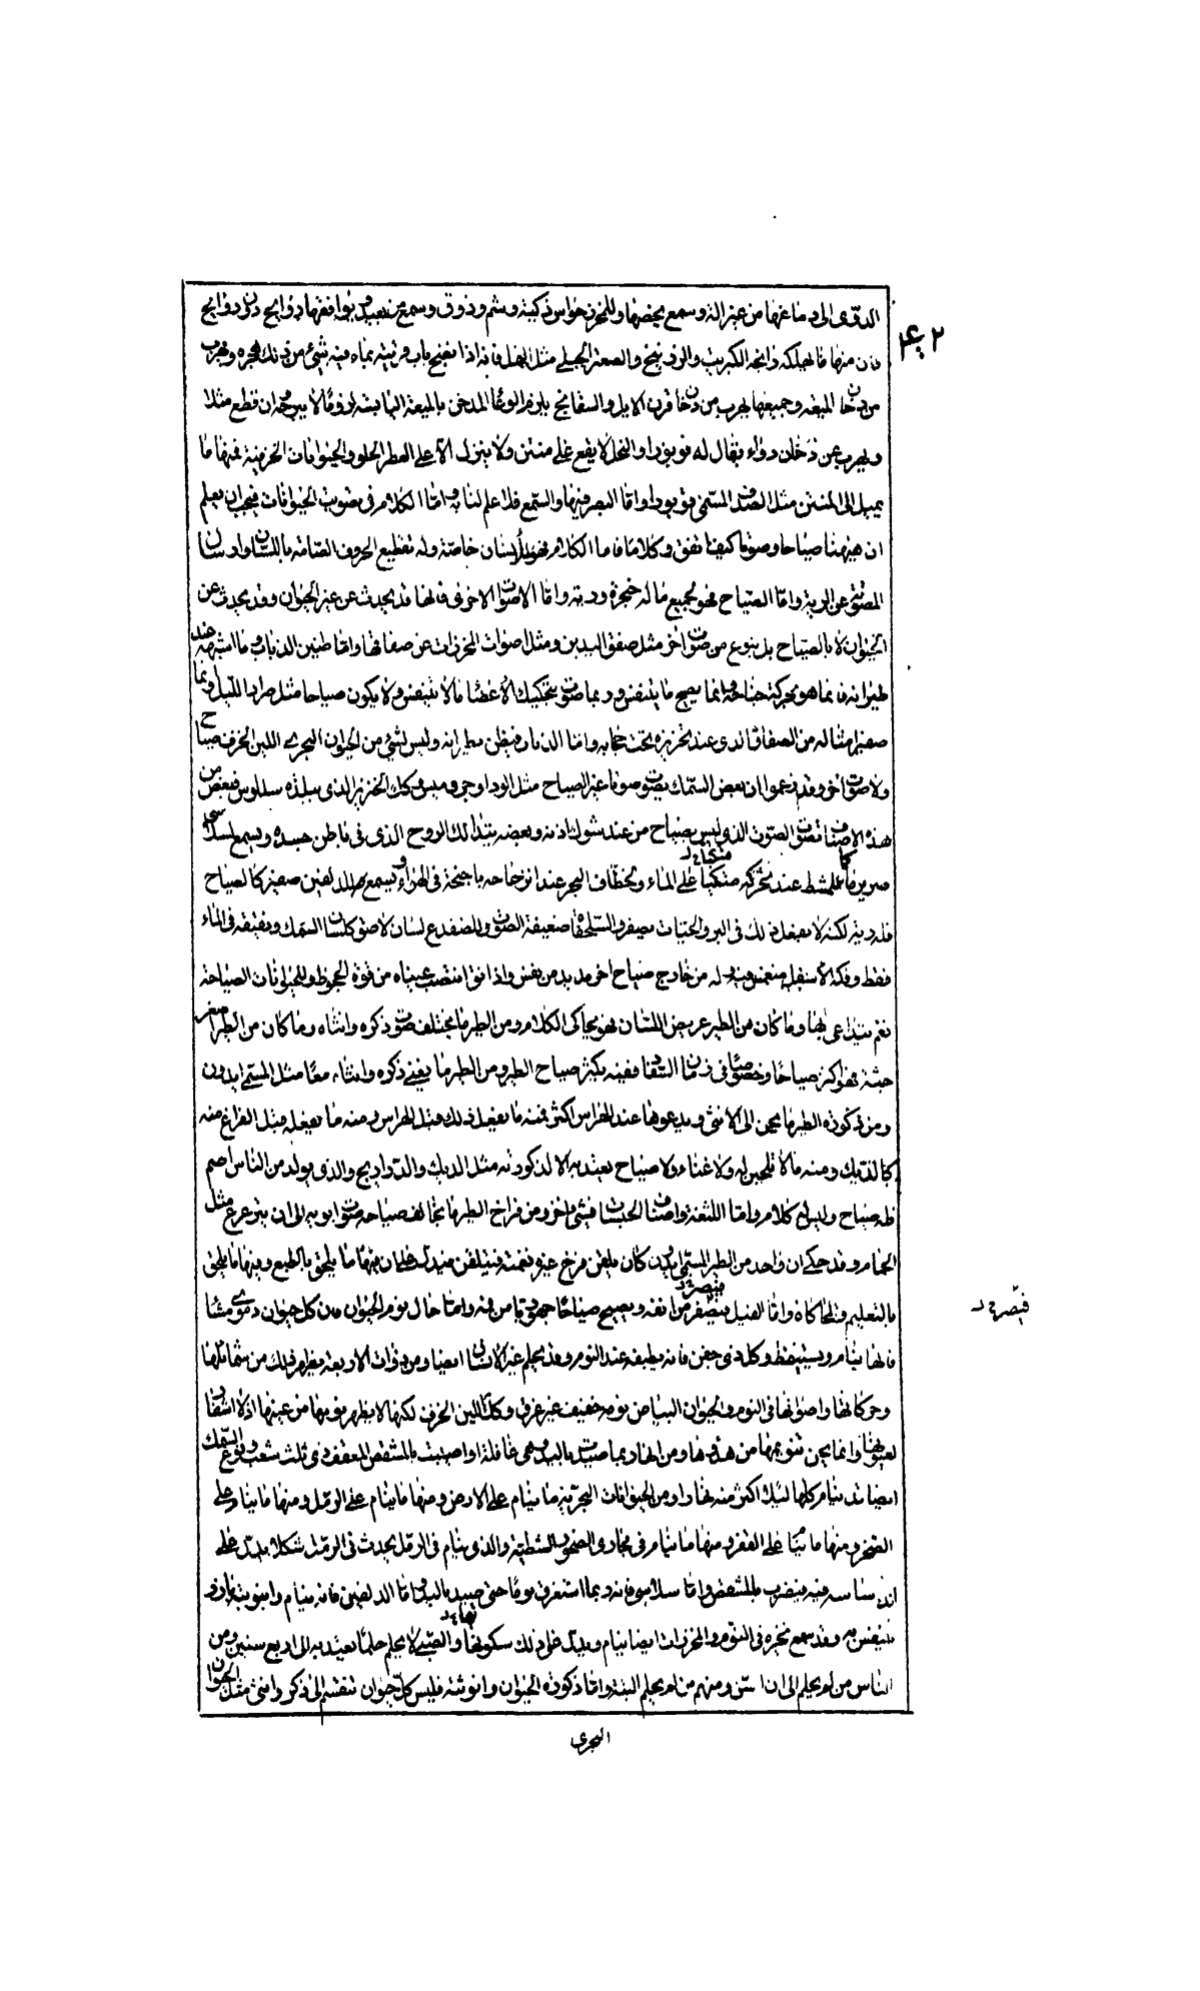 الدوى الى دماغها من غير الة وسمع يخصها وللمحزز حواس ذكية وشم وذوق وسمع من بعيد يوافقها روايح دون روايح
فان منها ما يهلكه رائحة الكبريت والزرنيخ والصعتر الجبلى مثل النمل فانه اذا نفخ باب قريته بماء فيه شىء من ذلك هجره وهرب
من دخان الميعة وجميعها يهرب من دخان قرن الايل
ويهرب عن دخان دواء يقال له فوبورا والنحل لا يقع على منتن ولا ينزل الا على العطر الحلو والحيوانات الخزفية فمنها ما
يميل الى المنتن مثل الصدف المسمى فوبورا واما البصر فيها والسمع فلا علم لنا به واما الكلام فى تصويت الحيوانات فيجب ان يعلم
ان ههنا صياحا وصوتا كيف اتفق وكلاما فاما الكلام فهو للانسان خاصة وله تقطيع الحروف الصامتة باللسان وارسال
المصوتة عن الرية واما الصياح فهو لجميع ماله حنجرة ورية واما الاصوات الاخرى فانها قد يحدث عن غير الحيوان وقد يحدث عن
الحيوان لا بالصياح بل بنوع من صوت اخر مثل صفق اليدين ومثل اصوات المحززات عن صفاقها واما طنين الذباب وما اشبهه عند
طيرانه فانما هو لحركة جناحه وانما يصيح ما يتنفس وربما صوت بتحكيك الاعضاء ما لا يتنفس ولا يكون صياحا مثل صرار الليل وربما
صفير امثاله من الصفاق الذى عند تحزيزه تحت حجابه واما الذباب فيطن بطيرانه وليس لشىء من الحيوان البحرى اللين الخزف صياح
ولا صوت اخر وقد زعموا ان بعض السمك يصوت صوتا غير الصياح مثل الوداوجرومس وكك الخنزير الذى ببلدة سلوس فبعض من
هذه الاصناف تصوت الصوت الذى ليس بصياح من عند شوك اذنه وبعضه بتدلك الروح الذى فى باطن جسده ويسمع لسلاسى
صرير ما كالمشط عند تحركه متكيا على الماء ولخطاف البحر عند انزخاجه باجنحة فى الهواء ويسمع للدلفين صفير كالصياح
فله رية لكنه لا يفعل ذلك فى البر والحيات يصفر والسلحفاة ضعيفة الصوت وللضفدع لسان لاصق كلسان السمك ونقنقه فى الماء
فقط وفكه الاسفل منغمس فيه له من خارج صياح اخر مديد من نفس واذا نق انتصبت عيناه من قوة الجحوظ وللحيوانات الصياحة
نغم يتداعى بها وما كان من الطير عريض اللسان فهو يحاكى الكلام ومن الطير ما يختلف صوت ذكره وانثاه وما كان من الطير اصغر
جثة فهو اكثر صياحا وخصوصا فى زمان السفاد ففيه يكثر صياح الطير ومن الطير ما يغنى ذكره وانثاه معا مثل المسمى ايدون
ومن ذكورة الطير ما يحن الى الانثى ويدعوها عند الهراس اكثر فمنه ما يفعل ذلك قبل الهراس ومنه ما يفعله قبل الفراغ منه
كالديك ومنه ما لا تلحين له ولا غناء ولا صياح يعتد به الا لذكورته مثل الديك والدواريج والذى يولد من الناس اصم
فله صياح وليس له كلام واما اللثغة واصناف الحبسات فشىء اخر ومن فراخ الطير ما يخالف صياحه صوت ابويه الى ان يترعرع مثل
الحمام وقد حكى ان واحد من الطير المسمى ايدون كان يلقن فرخ غيره نغمته فيتلقن فيدل على ان منها ما يلحق بالطبع ومنها ما يلحق
بالتعليم والمحاكاة واما الفيل فيصفر من انفه ويصيح صياحا جهوريا من فمه واما حال نوم الحيوان فان كل حيوان دموى مشاء
فانها ينام ويستيقظ وكل ذى جفن فانه يطبقه عند النوم وقد يحلم غير الانسان ايضا ومن ذوات الاربعة يظهر ذلك من شمائلها
وحركاتها واصواتها فى النوم والحيوان البياض نومه خفيف غير غرق وكذلك اللين الخزف لكنها لا يظهر نومها من عينها اذ لا اشفار
لعيونها وانما يحن تنومها من هدوها ومن انها ربما صيبت باليد وهى غافلة او اصيبت بالمشقص المعقف ذى ثلث شعب ونوع السمك
ايضا قد ينام كلها ليلا اكثر منه نهارا ومن الحيوانات البحرية ما ينام على الارض ومنها ما ينام على الرمل ومنها ما ينام على
الصخر ومنها ما ينام على القعر ومنها ما ينام فى مجارى الصخور الشطية والذى ينام فى الرمل يحدث فى الرمل شكلا يدل على
اندساسه فيه فيضرب بالمشقص واما سلاسى فانه ربما استغرق نوما حتى صيد باليد واما الدلفين فانه ينام وانبوبته بارزة
يتنفس به وقد سمع نخره فى النوم والمحززات ايضا ينام ويدل على ذلك سكونها والصبى لا يحلم حلما يعتد به الى اربع سنين ومن
الناس من لم يحلم الى ان اسن ومنهم من لم يحلم البتة واما ذكورة الحيوان وانوثته فليس كل حيوان تنقسم الى ذكر وانثى مثل الحيوان
البحرى